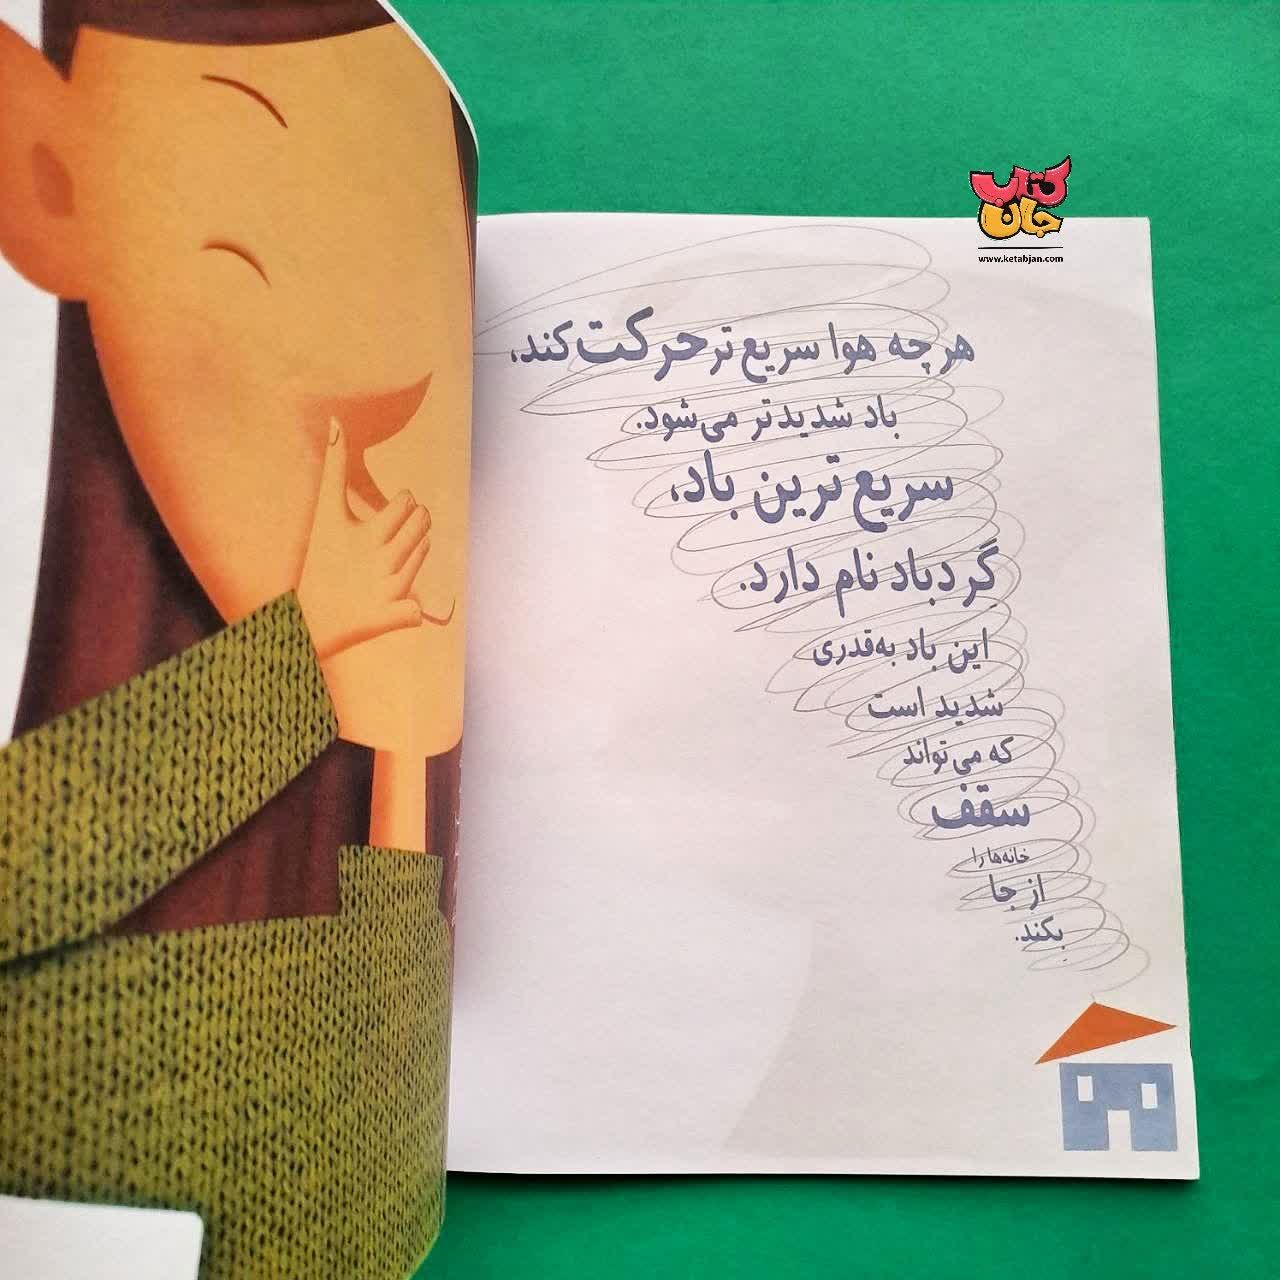 کتاب
جان
www.ketabjan.com
هر چه هوا سریع‌تر حرکت کند،
باد شدیدتر می‌شود.
سریع‌ترین باد،
گردباد نام دارد.
این باد به‌قدری
شدید است
که می‌تواند
سقف
خانه‌ها را
از جا
بکند.